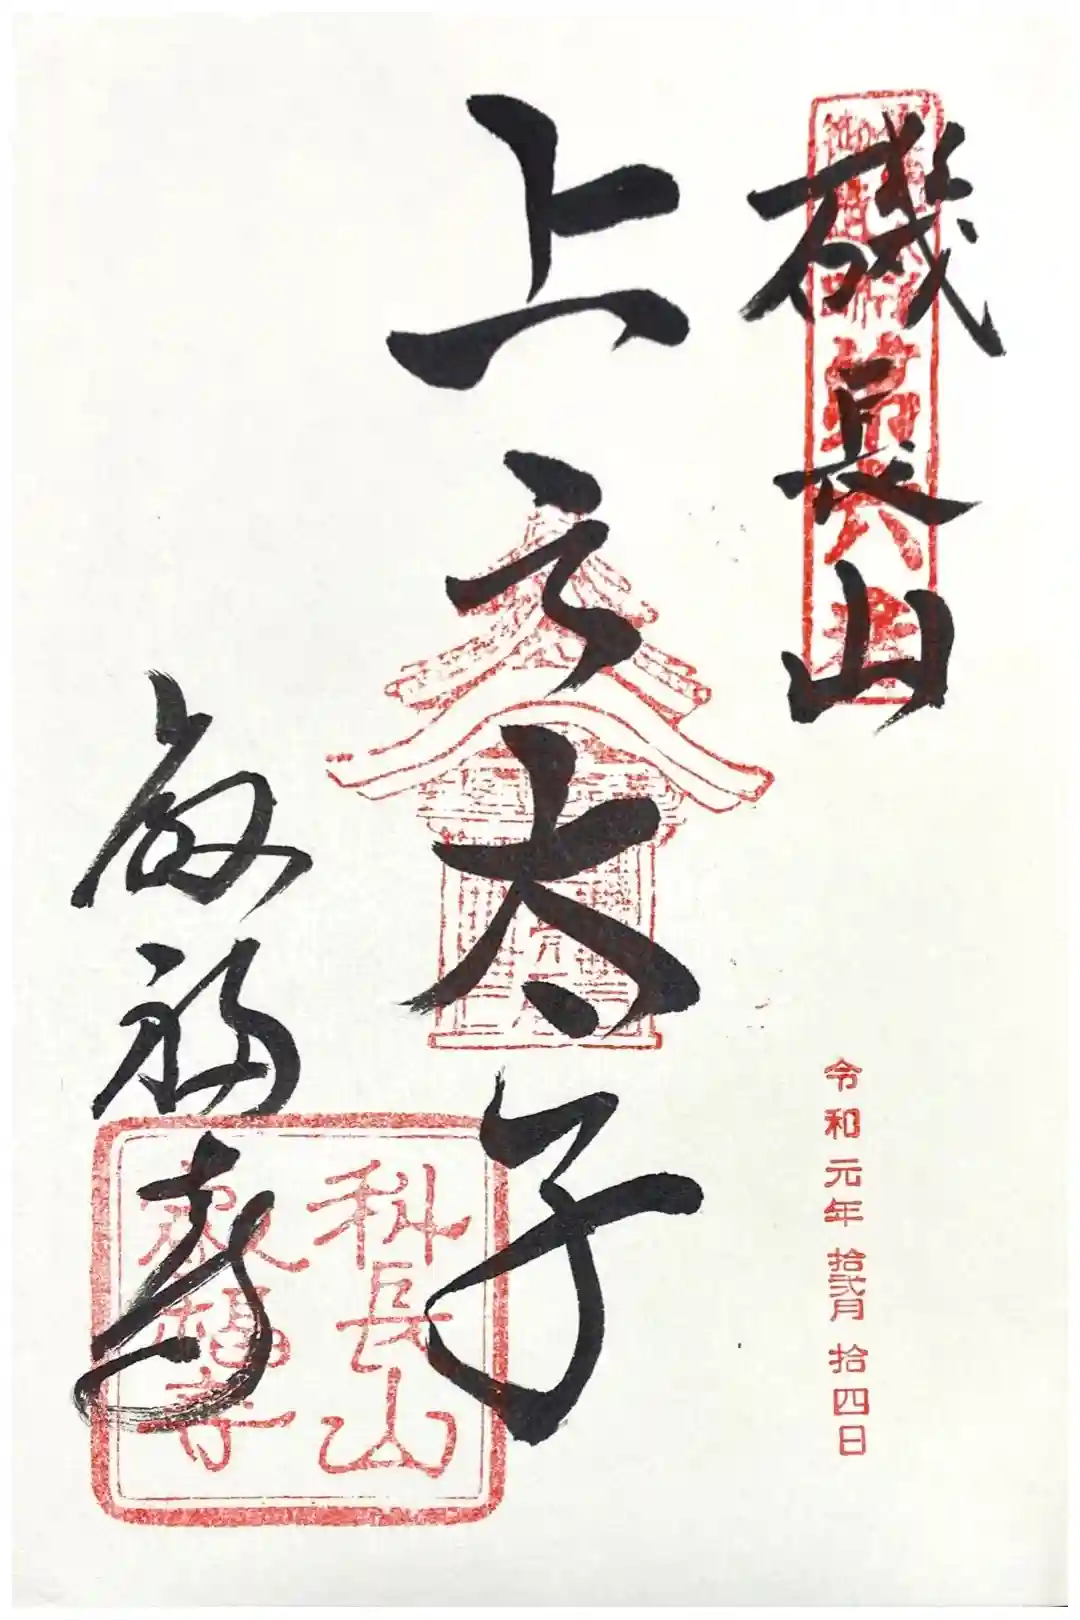 磯長山
上之太子
叡福寺
令和元年拾弐月拾四日
科長山
叡福寺